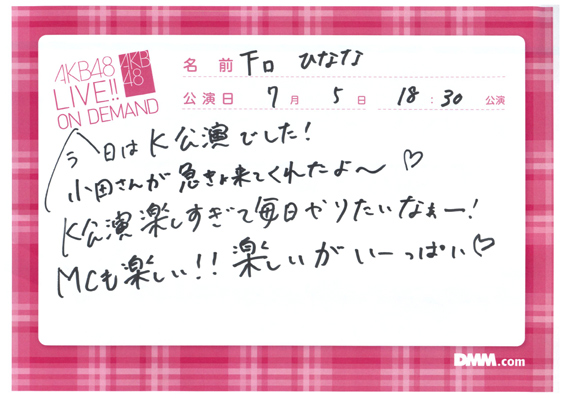 AKB48
LIVE!!
ON DEMAND
AKB
48
名 前 下口 ひななな
公演日 7月 5日 18:30 公演
今日はK公演でした!
小田さんが急きょ来てくれたよ〜♡
K公演楽しすぎて毎日やりたいなぁー!
MCも楽しい!!楽しいがいーっぱい♡
DMM.com